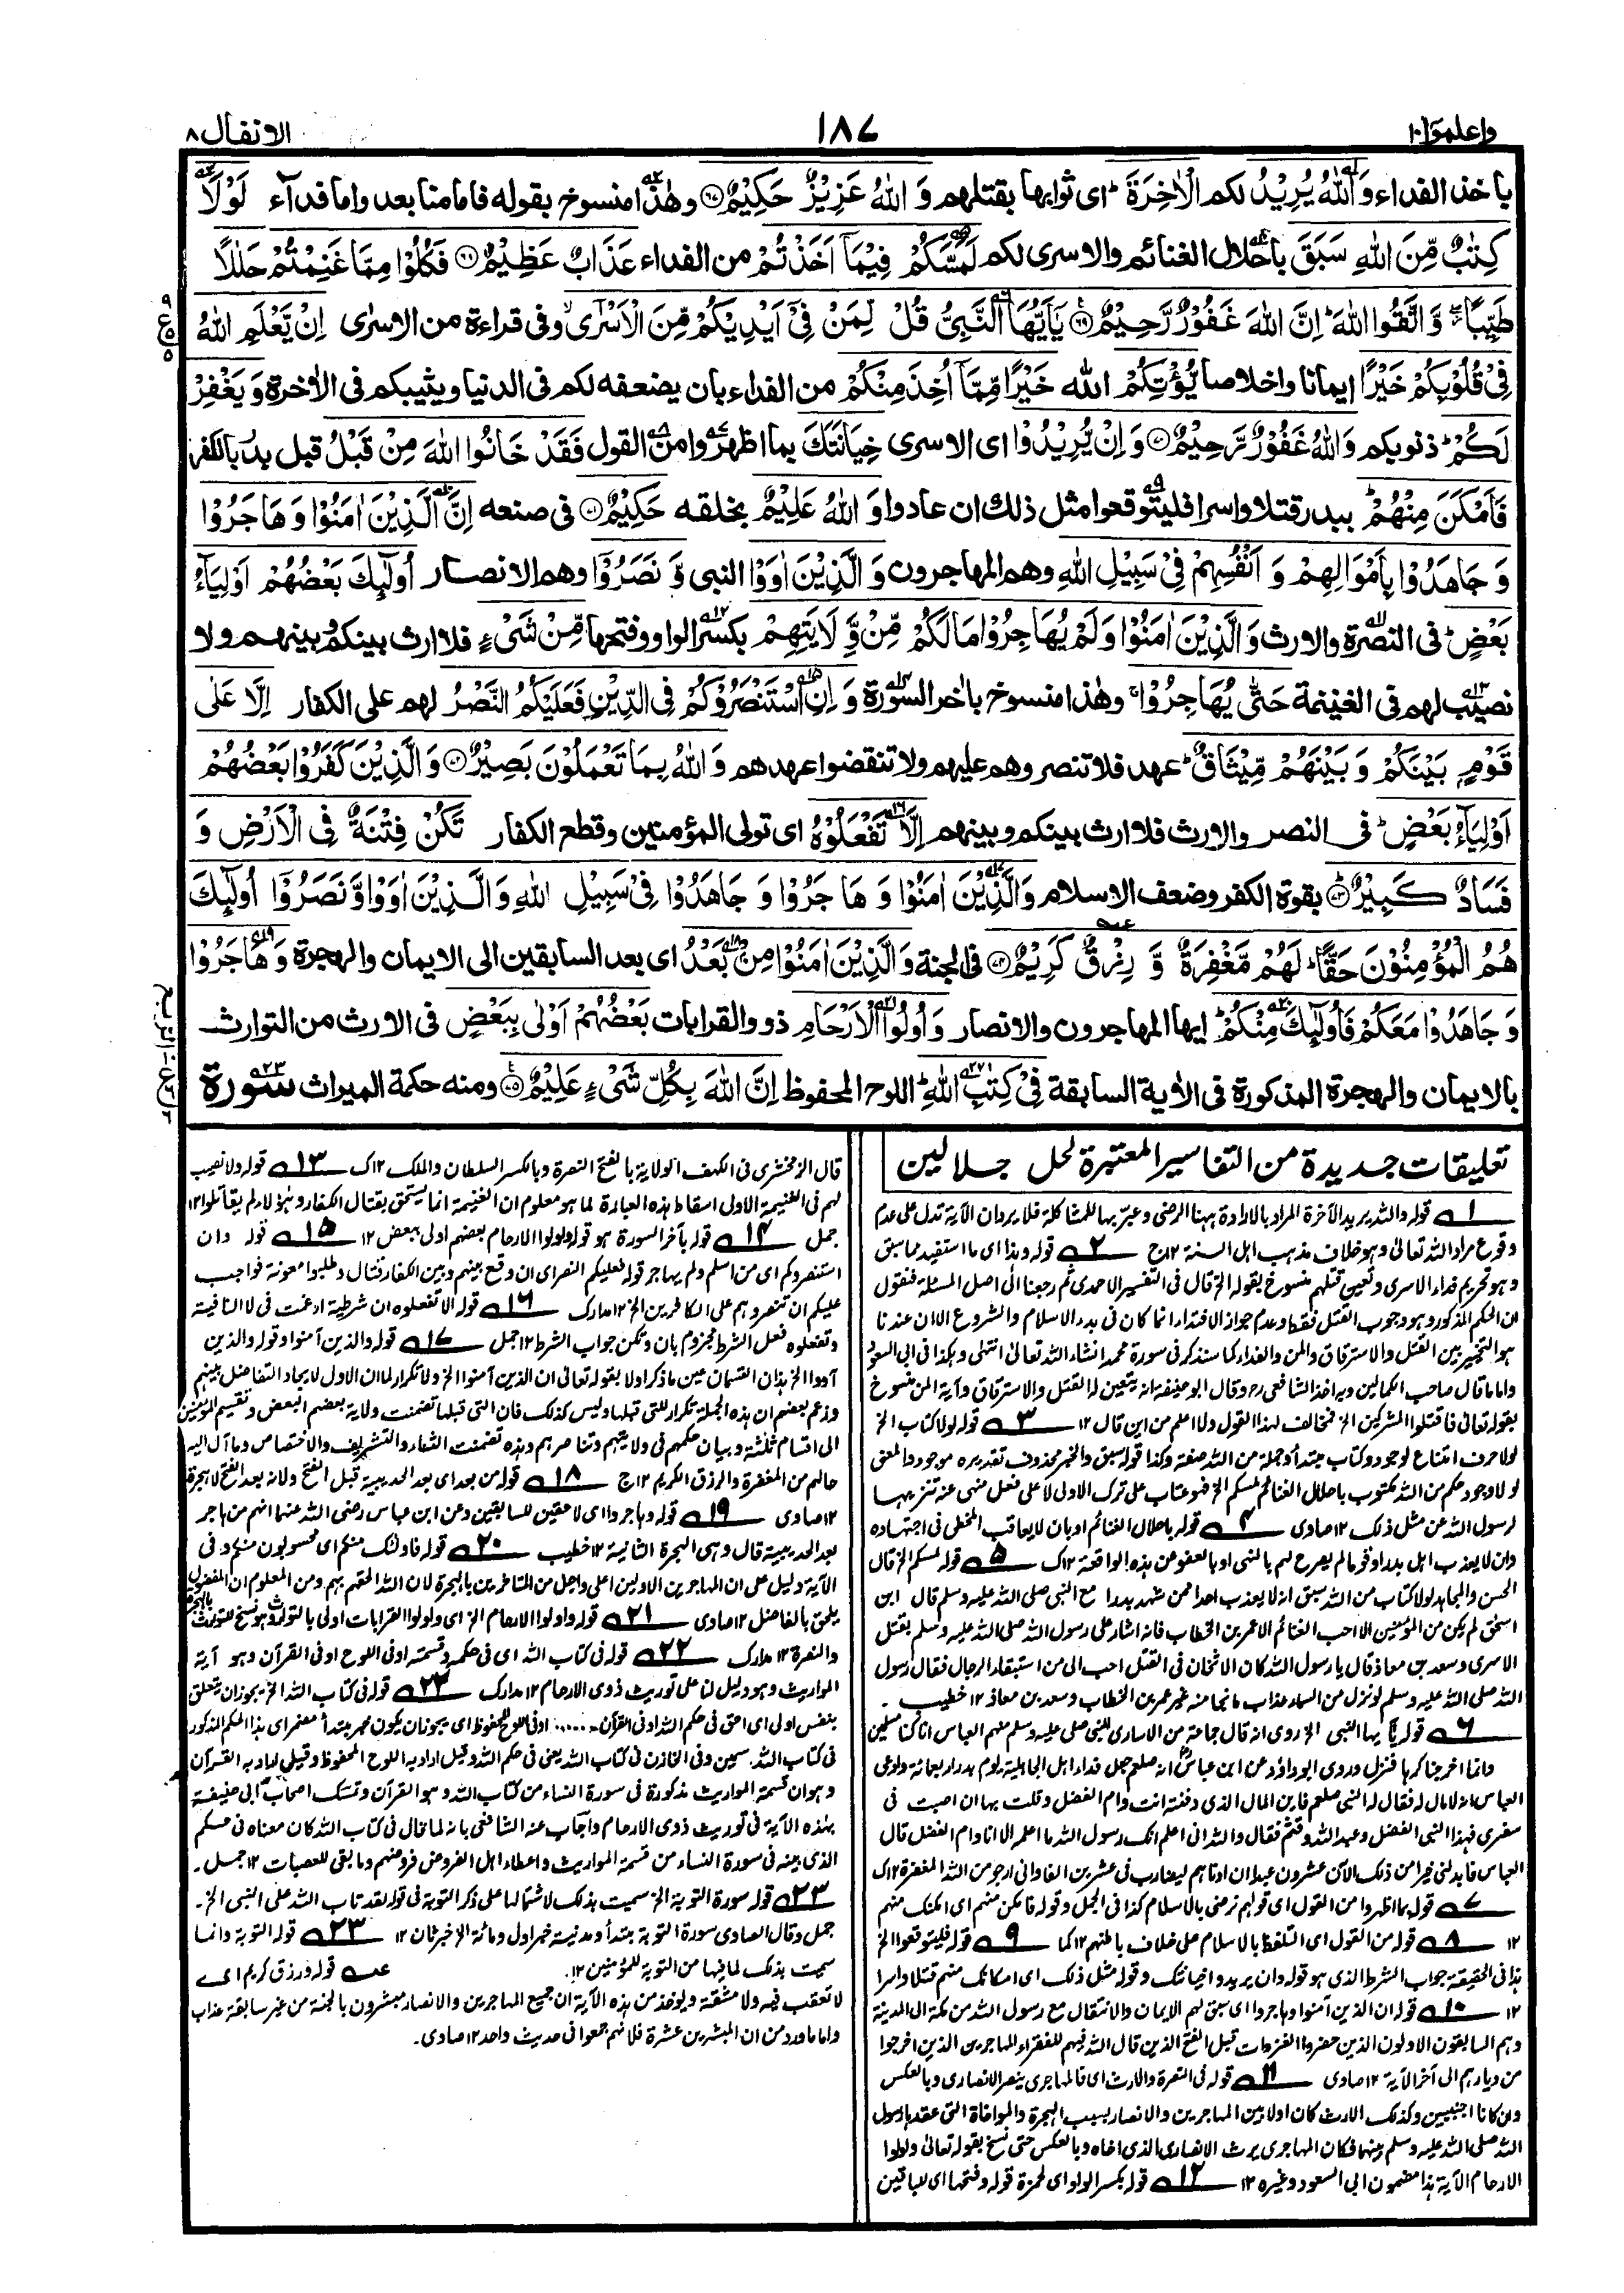 واعلموا ١٠
١٨٧
الانفال ٨
باخذ الفداء وَاللّٰهُ يُرِيْدُ لكم الْاٰخِرَةَ ؕ اى ثوابها بقتلهم وَ اللّٰهُ عَزِيْزٌ حَكِيْمٌ ﴿٦٧﴾ وهٰذا منسوخ بقوله فاما منا بعد واما فدآء لَوْلَا
كِتٰبٌ مِّنَ اللّٰهِ سَبَقَ باحلال الغنائم والاسرى لكم لَمَسَّكُمْ فِيْمَآ اَخَذْتُمْ من الفداء عَذَابٌ عَظِيْمٌ ﴿٦٨﴾ فَكُلُوْا مِمَّا غَنِمْتُمْ حَلٰلًا
طَيِّبًا ۖ وَّ اتَّقُوا اللّٰهَ ؕ اِنَّ اللّٰهَ غَفُوْرٌ رَّحِيْمٌ ﴿٦٩﴾ يٰٓاَيُّهَا النَّبِىُّ قُلْ لِّمَنْ فِىْٓ اَيْدِيْكُمْ مِّنَ الْاَسْرٰٓى ۙ وفى قراءة من الاسرٰى اِنْ يَّعْلَمِ اللّٰهُ
فِىْ قُلُوْبِكُمْ خَيْرًا ايمانا واخلاصا يُّؤْتِكُمْ الله خَيْرًا مِّمَّآ اُخِذَ مِنْكُمْ من الفداء بان يضعفه لكم فى الدنيا ويثيبكم فى الاٰخرة وَ يَغْفِرْ
لَكُمْ ؕ ذنوبكم وَاللّٰهُ غَفُوْرٌ رَّحِيْمٌ ﴿٧٠﴾ وَ اِنْ يُّرِيْدُوْا اى الاسرى خِيَانَتَكَ بما اظهروا من القول فَقَدْ خَانُوا اللّٰهَ مِنْ قَبْلُ قبل بدر بالكفر
فَاَمْكَنَ مِنْهُمْ ؕ ببدر قتلا واسرا فليتوقعوا مثل ذلك ان عادوا وَ اللّٰهُ عَلِيْمٌ بخلقه حَكِيْمٌ ﴿٧١﴾ فى صنعه اِنَّ الَّذِيْنَ اٰمَنُوْا وَ هَاجَرُوْا
وَ جَاهَدُوْا بِاَمْوَالِهِمْ وَ اَنْفُسِهِمْ فِىْ سَبِيْلِ اللّٰهِ وهم المهاجرون وَ الَّذِيْنَ اٰوَوْا النبى وَّ نَصَرُوْٓا وهم الانصار اُولٰٓئِكَ بَعْضُهُمْ اَوْلِيَآءُ
بَعْضٍ ؕ فى النصرة والارث وَ الَّذِيْنَ اٰمَنُوْا وَ لَمْ يُهَاجِرُوْا مَا لَكُمْ مِّنْ وَّلَايَتِهِمْ بكسر الواو وفتحها مِّنْ شَىْءٍ فلا ارث بينكم وبينهم ولا
نصيب لهم فى الغنيمة حَتّٰى يُهَاجِرُوْا ۚ وهٰذا منسوخ باٰخر السورة وَ اِنِ اسْتَنْصَرُوْكُمْ فِى الدِّيْنِ فَعَلَيْكُمُ النَّصْرُ لهم على الكفار اِلَّا عَلٰى
قَوْمٍ بَيْنَكُمْ وَ بَيْنَهُمْ مِّيْثَاقٌ ؕ عهد فلا تنصروهم عليهم ولا تنقضوا عهدهم وَ اللّٰهُ بِمَا تَعْمَلُوْنَ بَصِيْرٌ ﴿٧٢﴾ وَ الَّذِيْنَ كَفَرُوْا بَعْضُهُمْ
اَوْلِيَآءُ بَعْضٍ ؕ فى النصر والارث فلا ارث بينكم وبينهم اِلَّا تَفْعَلُوْهُ اى تولى المؤمنين وقطع الكفار تَكُنْ فِتْنَةٌ فِى الْاَرْضِ وَ
فَسَادٌ كَبِيْرٌ ﴿٧٣﴾ بقوة الكفر وضعف الاسلام وَالَّذِيْنَ اٰمَنُوْا وَ هَاجَرُوْا وَ جَاهَدُوْا فِىْ سَبِيْلِ اللّٰهِ وَ الَّذِيْنَ اٰوَوْا وَّ نَصَرُوْٓا اُولٰٓئِكَ
هُمُ الْمُؤْمِنُوْنَ حَقًّا ؕ لَهُمْ مَّغْفِرَةٌ وَّ رِزْقٌ كَرِيْمٌ ﴿٧٤﴾ فى الجنة وَ الَّذِيْنَ اٰمَنُوْا مِنْۢ بَعْدُ اى بعد السابقين الى الايمان والهجرة وَ هَاجَرُوْا
وَ جَاهَدُوْا مَعَكُمْ فَاُولٰٓئِكَ مِنْكُمْ ؕ ايها المهاجرون والانصار وَ اُولُوا الْاَرْحَامِ ذوو القرابات بَعْضُهُمْ اَوْلٰى بِبَعْضٍ فى الارث من التوارث
بالايمان والهجرة المذكورة فى الاٰية السابقة فِىْ كِتٰبِ اللّٰهِ ؕ اللوح المحفوظ اِنَّ اللّٰهَ بِكُلِّ شَىْءٍ عَلِيْمٌ ﴿٧٥﴾ ومنه حكمة الميراث سورة
تعليقات جديدة من التفاسير المعتبرة لحل جلالين
١ قوله والله يريد الآخرة المراد بالارادة ههنا الرضى وعبر بها للمشاكلة فلا يرد ان الآية تدل على عدم
وقوع مراد الله تعالى وهو خلاف مذهب اهل السنة ١٢ج ٢ قوله وهذا اى ما استفيد مما سبق
وهو تحريم فداء الاسرى وتعين قتلهم منسوخ بقوله الخ قال فى التفسير الاحمدى ثم رجعنا الى اصل المسئلة فنقول
ان الحكم المذكور وهو وجوب القتل فقط وعدم جواز الافتداء انما كان فى بدء الاسلام والشروع الان عندنا
هو التخيير بين القتل والاسترقاق والمن والفداء كما سنذكر فى سورة محمد انشاء الله تعالى انتهى وهكذا فى ابى السعود
واما ما قال صاحب الكمالين وبه اخذ الشافعى رح وقال ابو حنيفة انه يتعين له القتل والاسترقاق وآية المن منسوخ
بقوله تعالى فاقتلوا المشركين الخ فمخالف لهذا القول ولا اعلم من اين قال ١٢ ٣ قوله لولا كتاب الخ
لولا حرف امتناع لوجود وكتاب مبتدأ وجملة من الله صفة وكذا قوله سبق والخبر محذوف تقديره موجود والمعنى
لولا وجود حكم من الله مكتوب باحلال الغنائم لمسكم الخ فهو عتاب على ترك الاولى لا على فعل منهى عنه تنزيها
لرسول الله عن مثل ذلك ١٢ صاوى ٤ قوله باحلال الغنائم او بان لا يعاقب المخطى فى اجتهاده
وان لا يعذب اهل بدر او قوما لم يصرح لهم بالنهى او بالعفو من هذه الواقعة ١٢ك ٥ قوله لمسكم الخ قال
الحسن والمجاهد لولا كتاب من الله سبق انه لا يعذب احدا ممن شهد بدرا مع النبى صلى الله عليه وسلم قال ابن
اسحٰق لم يكن من المؤمنين الا احب الغنائم الا عمر بن الخطاب فانه اشار على رسول الله صلى الله عليه وسلم بقتل
الاسرى وسعد بن معاذ قال يا رسول الله كان الاثخان فى القتل احب الى من استبقاء الرجال فقال رسول
الله صلى الله عليه وسلم لو نزل من السماء عذاب ما نجا منه غير عمر بن الخطاب وسعد بن معاذ ١٢ خطيب
٦ قوله يآيها النبى الخ روى انه قال جماعة من الاسارى للنبى صلى الله عليه وسلم منهم العباس انا كنا مسلمين
وانما اخرجنا كرها فنزل وروى ابو داؤد عن ابن عباس انه صلعم جعل فداء اهل الجاهلية يوم بدر اربعمائة وادعى
العباس انه لا مال له فقال له النبى صلعم فاين المال الذى دفنته انت وام الفضل وقلت بها ان اصبت فى
سفرى فهذا لبنى الفضل وعبد الله وقثم فقال والله انى اعلم انك رسول الله ما اعلم الا انا وام الفضل قال
العباس فابدلنى خيرا من ذلك الآن عشرون عبدا ان ادناهم ليضارب فى عشرين الفا وانى ارجو من الله المغفرة ١٢ك
٧ قوله بما اظهروا من القول اى قولهم نرضى بالاسلام كذا فى الجمل وقوله فامكن منهم اى امكنك منهم
١٢ ٨ قوله من القول اى التلفظ بالاسلام على خلاف باطنهم ١٢ كما ٩ قوله فليتوقعوا الخ
هذا فى الحقيقة جواب الشرط الذى هو قوله وان يريدوا خيانتك وقوله مثل ذلك اى امكانك منهم قتلا واسرا
١٢ ١٠ قوله ان الذين آمنوا وهاجروا اى سبق لهم الايمان والانتقال مع رسول الله من مكة الى المدينة
وهم السابقون الاولون الذين حضروا الغزوات قبل الفتح الذين قال الله فيهم للفقراء المهاجرين الذين اخرجوا
من ديارهم الى آخر الآية ١٢ صاوى ١١ قوله فى النصرة والارث اى فالمهاجرى ينصر الانصارى وبالعكس
وان كانا اجنبيين وكذلك الارث كان اولا بين المهاجرين والانصار بسبب الهجرة والمواخاة التى عقدها رسول
الله صلى الله عليه وسلم بينهما فكان المهاجرى يرث الانصارى الذى اخاه وبالعكس حتى نسخ بقوله تعالى واولوا
الارحام الآية هذا مضمون ابى السعود وغيره ١٢ ١٢ قوله بكسر الواو اى لحمزة قوله وفتحها اى للباقين
قال الزمخشرى فى الكهف الولاية بالفتح النصرة وبالكسر السلطان والملك ١٢ك ١٣ قوله ولا نصيب
لهم فى الغنيمة الاولى اسقاط هذه العبارة لما هو معلوم ان الغنيمة انما يستحق بقتال الكفار وهؤلاء لم يقاتلوا ١٢
جمل ١٤ قوله بآخر السورة هو قوله واولوا الارحام بعضهم اولى ببعض ١٢ ١٥ قوله وان
استنصروكم اى من اسلم ولم يهاجر قوله فعليكم النصر اى ان وقع بينهم وبين الكفار قتال وطلبوا معونة فواجب
عليكم ان تنصروهم على الكافرين الخ ١٢ مدارك ١٦ قوله الا تفعلوه ان شرطية ادغمت فى لا النافية
وتفعلوه فعل الشرط مجزوم بان وتكن جواب الشرط ١٢ جمل ١٧ قوله والذين آمنوا وقوله والذين
آووا الخ هذان القسمان عين ما ذكرا ولا بقوله تعالى ان الذين آمنوا الخ ولا تكرار لما ان الاول لايجاد التفاضل بينهم
وزعم بعضهم ان هذه الجملة تكرار للتى قبلها وليس كذلك فان التى قبلها تضمنت ولاية بعضهم البعض وتقسيم المؤمنين
الى اقسام ثلثة وبيان حكمهم فى ولايتهم وتناصرهم وهذه تضمنت الثناء والتشريف والاختصاص وما آل اليه
حالهم من المغفرة والرزق الكريم ١٢ج ١٨ قوله من بعد اى بعد الحديبية قبل الفتح ولانه بعد الفتح لا هجرة
١٢ صاوى ١٩ قوله وهاجروا اى لاحقين للسابقين وعن ابن عباس رضى الله عنهما انهم من هاجر
بعد الحديبية قال وهى الهجرة الثانية ١٢ خطيب ٢٠ قوله فاولئك منكم اى محسوبون منكم وفى
الآية دليل على ان المهاجرين الاولين اعلى واجل من المتاخرين بالهجرة لان الله الحقهم بهم ومن المعلوم ان المفضول
يلحق بالفاضل ١٢ صاوى ٢١ قوله واولوا الارحام الخ اى واولوا القرابات اولى بالتوارث وهو نسخ للتوارث بالهجرة
والنصرة ١٢ مدارك ٢٢ قوله فى كتاب الله اى فى حكمه وقسمته او فى اللوح او فى القرآن وهو آية
المواريث وهو دليل لنا على توريث ذوى الارحام ١٢ مدارك ٢٣ قوله فى كتاب الله الخ يجوز ان يتعلق
بنفس اولى اى احق فى حكم الله او فى القرآن ..... او فى اللوح المحفوظ اى يجوز ان يكون خبر مبتدأ مضمر اى هذا الحكم المذكور
فى كتاب الله. سمين وفى الخازن فى كتاب الله يعنى فى حكم الله وقيل اراد به اللوح المحفوظ وقيل اراد به القرآن
وهو ان قسمة المواريث مذكورة فى سورة النساء من كتاب الله وهو القرآن وتمسك اصحاب ابى حنيفة
بهذه الآية فى توريث ذوى الارحام واجاب عنه الشافعى بانه لما قال فى كتاب الله كان معناه فى حكم
الذى بينه فى سورة النساء من قسمة المواريث واعطاء اهل الفروض فروضهم وما بقى للعصبات ١٢ جمل.
٢٣ قوله سورة التوبة الخ سميت بذلك لاشتمالها على ذكر التوبة فى قوله لقد تاب الله على النبى الخ.
جمل وقال الصاوى سورة التوبة مبتدأ ومدنية خبر اول ومائة الخ خبر ثان ١٢ ٢٣ قوله التوبة وانما
سميت بذلك لما فيها من التوبة للمؤمنين ١٢. عه قوله ورزق كريم اى
لا تعقب فيه ولا مشقة ويوخذ من هذه الآية ان جميع المهاجرين والانصار مبشرون بالجنة من غير سابقة عذاب
واما ما ورد من ان المبشرين عشرة فلانهم جمعوا فى حديث واحد ١٢ صاوى.